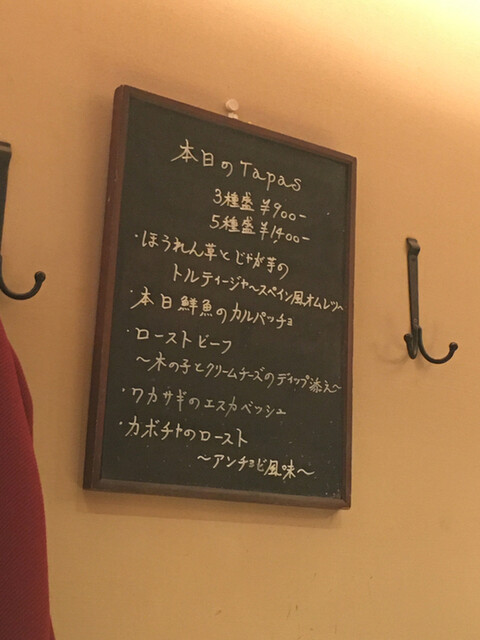 本日のTapas
3種盛 ¥900-
5種盛 ¥1400-
・ほうれん草とじゃが芋の
トルティージャ〜スペイン風オムレツ〜
・本日鮮魚のカルパッチョ
・ローストビーフ
〜木の子とクリームチーズのディップ添え〜
・ワカサギのエスカベッシュ
・カボチャのロースト
〜アンチョビ風味〜